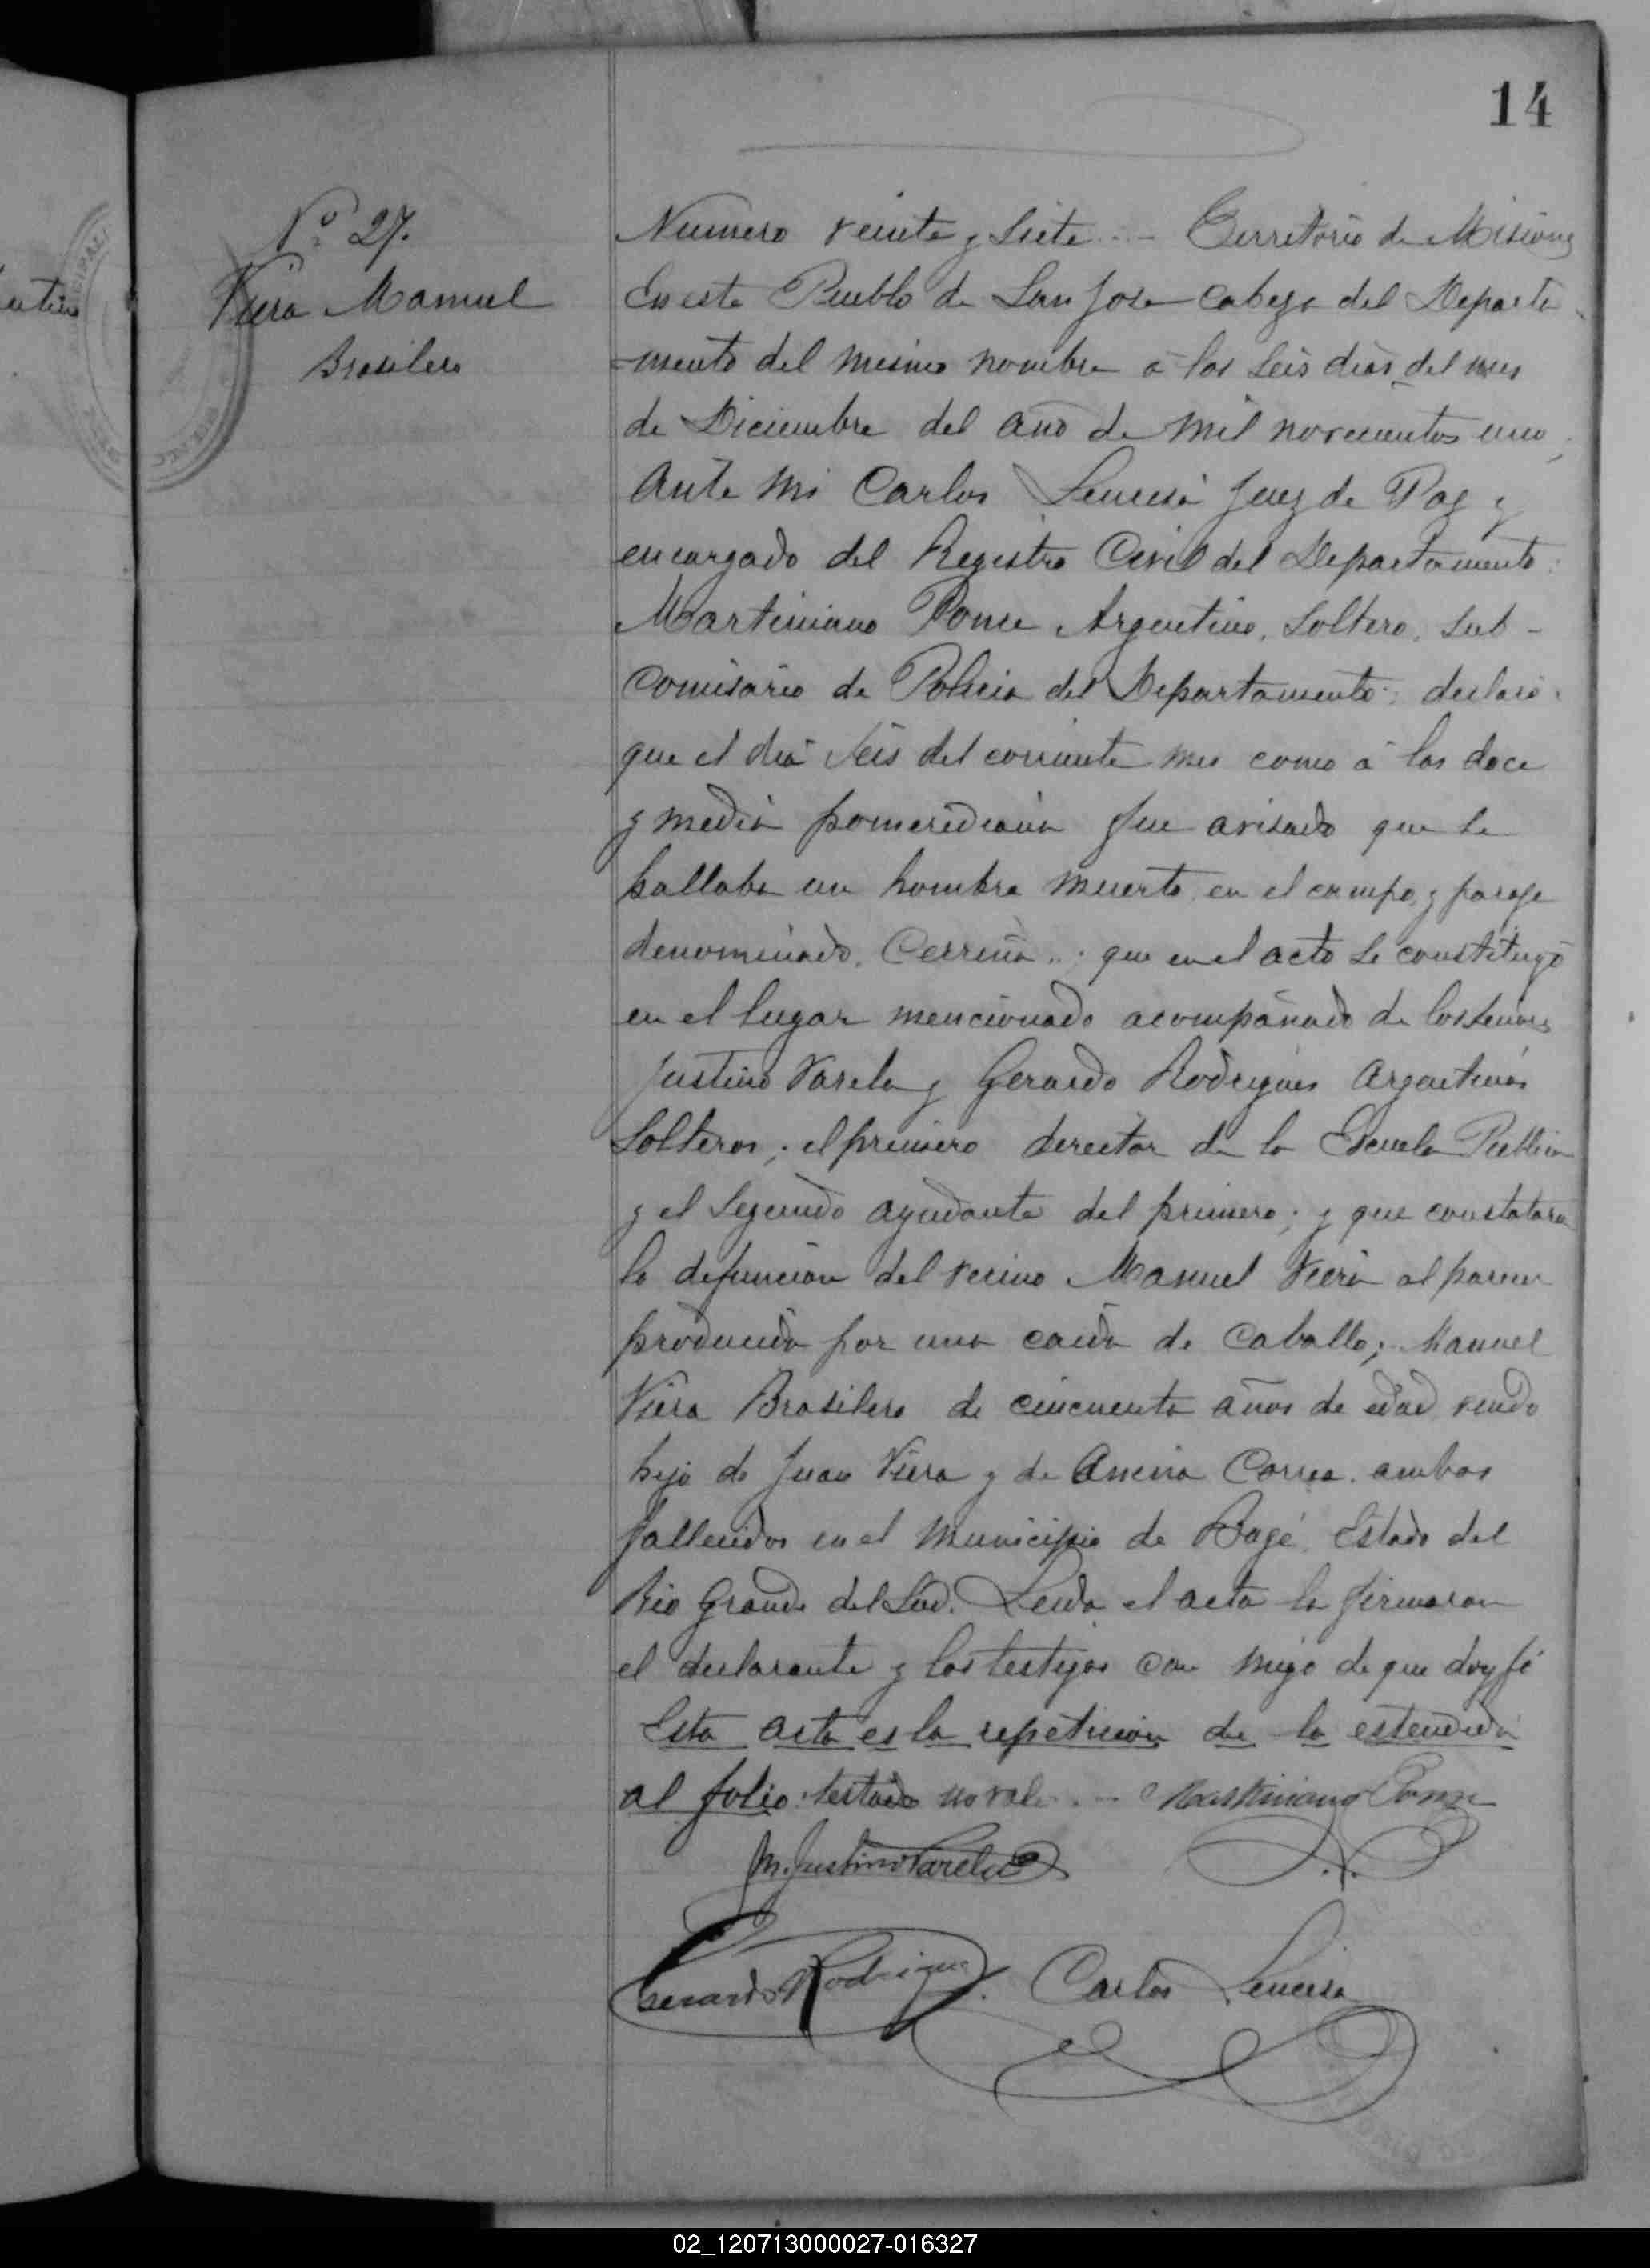 14
Nº 27.
Viera Manuel
Brasilero
Numero veinte y siete .. - Territorio de Misiones
En este Pueblo de San Jose cabeza del Departa
-mento del mismo nombre á los seis dias del mes
de Diciembre del año de mil novecientos uno,
Ante mi Carlos Juez de Paz y
encargado del Registro Civil del Departamento:
Martiniano Ponce Argentino, soltero, sub-
comisario de Policia del Departamento: declaró
que el dia seis del corriente mes como á las doce
y media pomeridiana fue avisado que se
hallaba un hombre muerto en el campo, y paraje
denominado. : que en el acto se constituyó
en el lugar mencionado acompañado de los señores
Justino Varela y Gerardo Rodrigues Argentinos
Solteros; el primero director de la Escuela Publica
y el segundo ayudante del primero; y que constataron
la defuncion del vecino Manuel Viera al parecer
producida por una caida de caballo; Manuel
Viera Brasilero de cincuenta años de edad viudo
hijo de Juan Viera y de Correa. ambos
fallecidos en el Municipio de Bagé Estado del
Rio Grande del Sud. Leida el acta la firmaron
el declarante y los testigos con migo de que doy fé
Esta acta es la repeticion de la estendida
al folio: testado no vale. - Martiniano Ponce
M. Justino Varela
Gerardo Rodrigues. Carlos
02_120713000027-016327